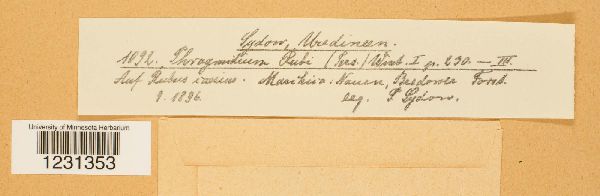 Sydow, Uredineen.
1092. Phragmidium Rubi (Pers.) Wint. I p. 230. — III.
Auf Rubus caesius. Marchica: Nauen, Bredower Forst.
9. 1896. leg. P. Sydow.
University of Minnesota Herbarium
1231353